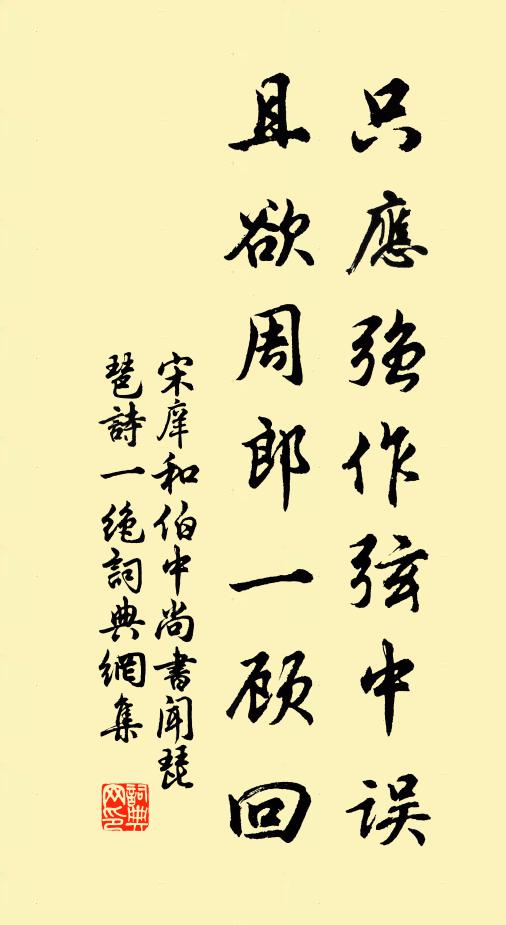 只應強作弦中误
且欲周郎一顾回
宋庠和伯中尚書闻琵
琶詩一绝詞典網集
詞典
网印